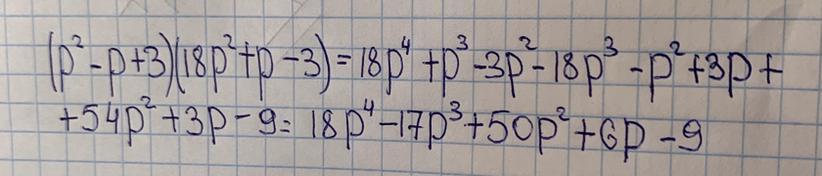 (p²-p+3)(18p²+p-3)=18p⁴+p³-3p²-18p³-p²+3p+
+54p²+3p-9=18p⁴-17p³+50p²+6p-9